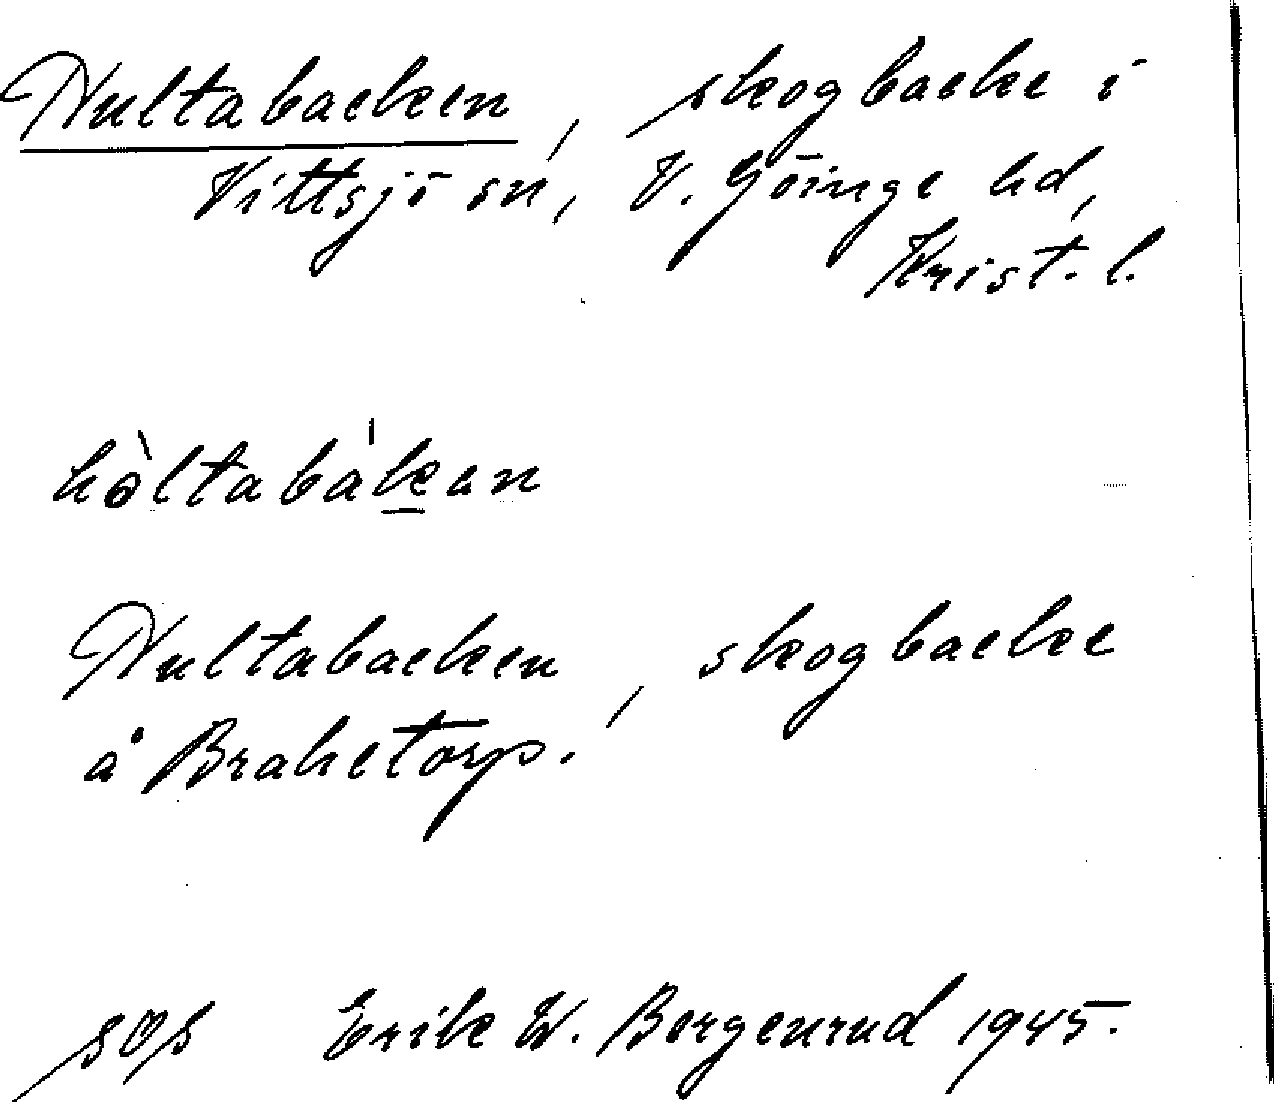 Hultabacken, skogbacke i
Vittsjö sn, V. Göinge hd,
Krist. l.
hòltabákan
Hultabacken, skogbacke
å Braketorp.
Erik W. Borgenrud 1945.